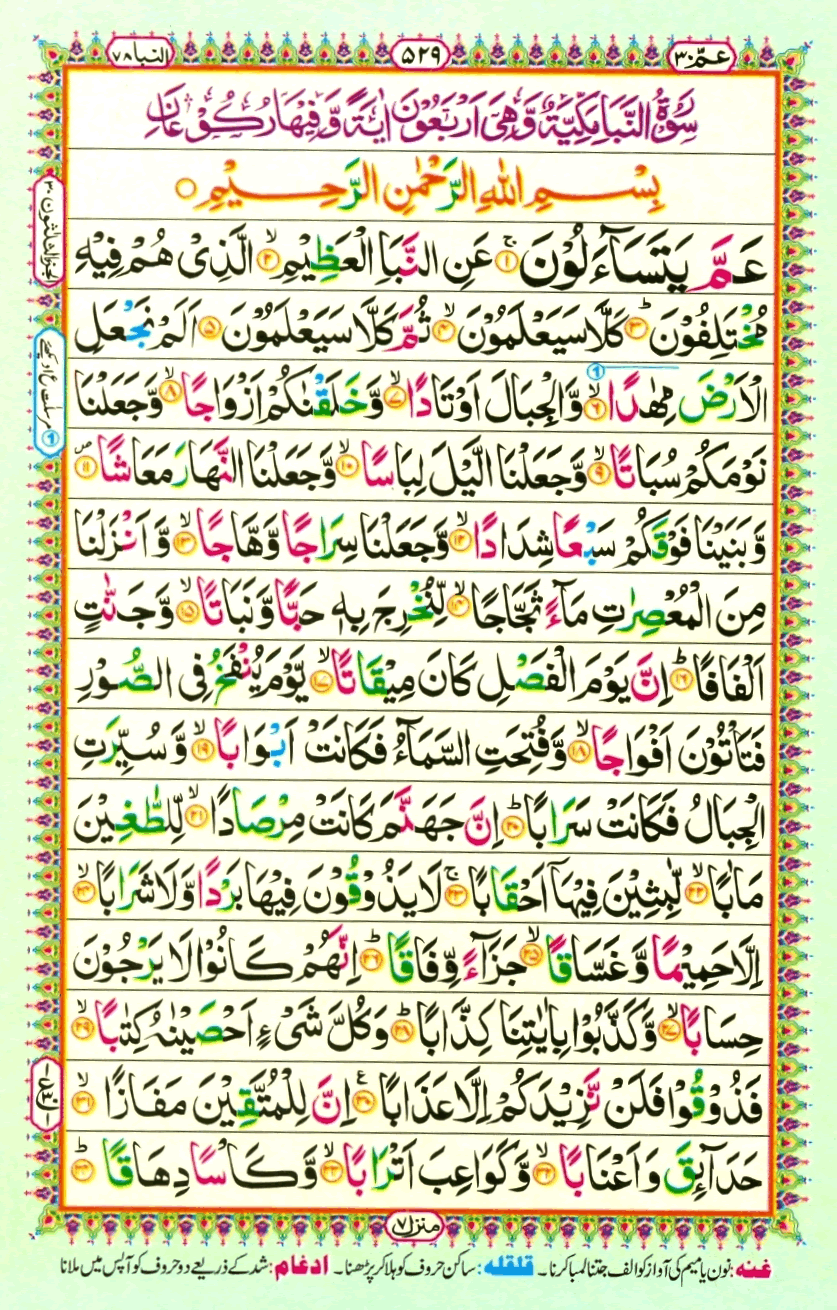 عمّ ۳۰
۵۲۹
النبا ۷۸
سُوْرَةُ النَّبَاِ مَكِّيَّةٌ وَّهِيَ اَرْبَعُوْنَ اٰيَةً وَّفِيْهَا رُكُوْعَانِ
بِسْمِ اللهِ الرَّحْمٰنِ الرَّحِيْمِ ○
عَمَّ يَتَسَآءَلُوْنَ ۚ﴿۱﴾ عَنِ النَّبَاِ الْعَظِيْمِ ۙ﴿۲﴾ الَّذِىْ هُمْ فِيْهِ
مُخْتَلِفُوْنَ ؕ﴿۳﴾ كَلَّا سَيَعْلَمُوْنَ ۙ﴿۴﴾ ثُمَّ كَلَّا سَيَعْلَمُوْنَ ﴿۵﴾ اَلَمْ نَجْعَلِ
الْاَرْضَ مِهٰدًا ۙ﴿۶﴾ وَّالْجِبَالَ اَوْتَادًا ۪ۙ﴿۷﴾ وَّخَلَقْنٰكُمْ اَزْوَاجًا ۙ﴿۸﴾ وَّجَعَلْنَا
نَوْمَكُمْ سُبَاتًا ۙ﴿۹﴾ وَّجَعَلْنَا الَّيْلَ لِبَاسًا ۙ﴿۱۰﴾ وَّجَعَلْنَا النَّهَارَ مَعَاشًا ۪﴿۱۱﴾
وَّبَنَيْنَا فَوْقَكُمْ سَبْعًا شِدَادًا ۙ﴿۱۲﴾ وَّجَعَلْنَا سِرَاجًا وَّهَّاجًا ۪ۙ﴿۱۳﴾ وَّاَنْزَلْنَا
مِنَ الْمُعْصِرٰتِ مَآءً ثَجَّاجًا ۙ﴿۱۴﴾ لِّنُخْرِجَ بِهٖ حَبًّا وَّنَبَاتًا ۙ﴿۱۵﴾ وَّجَنّٰتٍ
اَلْفَافًا ؕ﴿۱۶﴾ اِنَّ يَوْمَ الْفَصْلِ كَانَ مِيْقَاتًا ۙ﴿۱۷﴾ يَّوْمَ يُنْفَخُ فِى الصُّوْرِ
فَتَاْتُوْنَ اَفْوَاجًا ۙ﴿۱۸﴾ وَّفُتِحَتِ السَّمَآءُ فَكَانَتْ اَبْوَابًا ۙ﴿۱۹﴾ وَّسُيِّرَتِ
الْجِبَالُ فَكَانَتْ سَرَابًا ؕ﴿۲۰﴾ اِنَّ جَهَنَّمَ كَانَتْ مِرْصَادًا ۪ۙ﴿۲۱﴾ لِّلطّٰغِيْنَ
مَاٰبًا ۙ﴿۲۲﴾ لّٰبِثِيْنَ فِيْهَاۤ اَحْقَابًا ۚ﴿۲۳﴾ لَا يَذُوْقُوْنَ فِيْهَا بَرْدًا وَّلَا شَرَابًا ۙ﴿۲۴﴾
اِلَّا حَمِيْمًا وَّغَسَّاقًا ۙ﴿۲۵﴾ جَزَآءً وِّفَاقًا ؕ﴿۲۶﴾ اِنَّهُمْ كَانُوْا لَا يَرْجُوْنَ
حِسَابًا ۙ﴿۲۷﴾ وَّكَذَّبُوْا بِاٰيٰتِنَا كِذَّابًا ؕ﴿۲۸﴾ وَكُلَّ شَىْءٍ اَحْصَيْنٰهُ كِتٰبًا ۙ﴿۲۹﴾
فَذُوْقُوْا فَلَنْ نَّزِيْدَكُمْ اِلَّا عَذَابًا ﴿۳۰﴾ اِنَّ لِلْمُتَّقِيْنَ مَفَازًا ۙ﴿۳۱﴾
حَدَآئِقَ وَاَعْنَابًا ۙ﴿۳۲﴾ وَّكَوَاعِبَ اَتْرَابًا ۙ﴿۳۳﴾ وَّكَاْسًا دِهَاقًا ؕ﴿۳۴﴾
منزل ۷
غنه: نون یا میم کی آواز کو الف جتنا لمبا کرنا۔ قلقله: ساکن حروف کو ہلا کر پڑھنا۔ ادغام: شد کے ذریعے دو حروف کو آپس میں ملانا